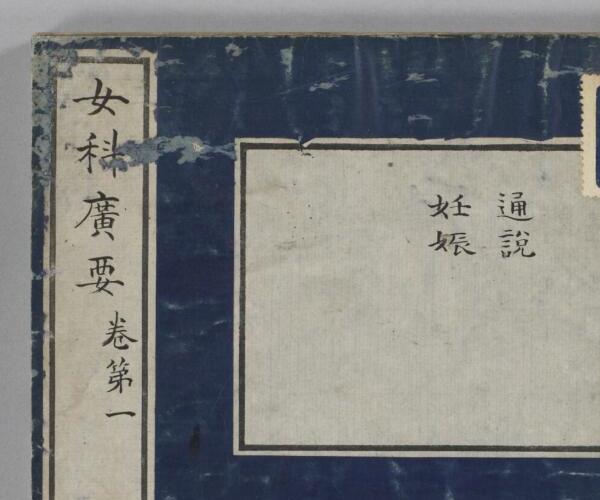 女科廣要 卷第一
通說
妊娠